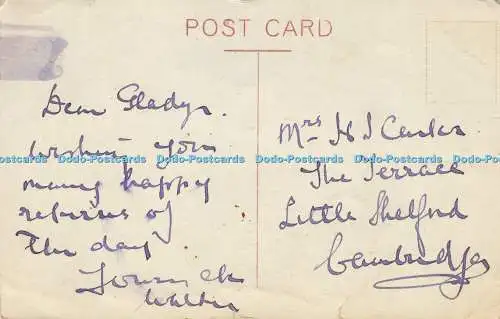 POST CARD
Dear Gladys.
Wishing you
many happy
returns of
the day
Yours
Walter
Mrs H J Carter
The Terrace
Little Shelford
Cambridge
Dodo-Postcards Dodo-Postcards Dodo-Postcards Dodo-Postcards Dodo-Postcards Dodo-Postcards